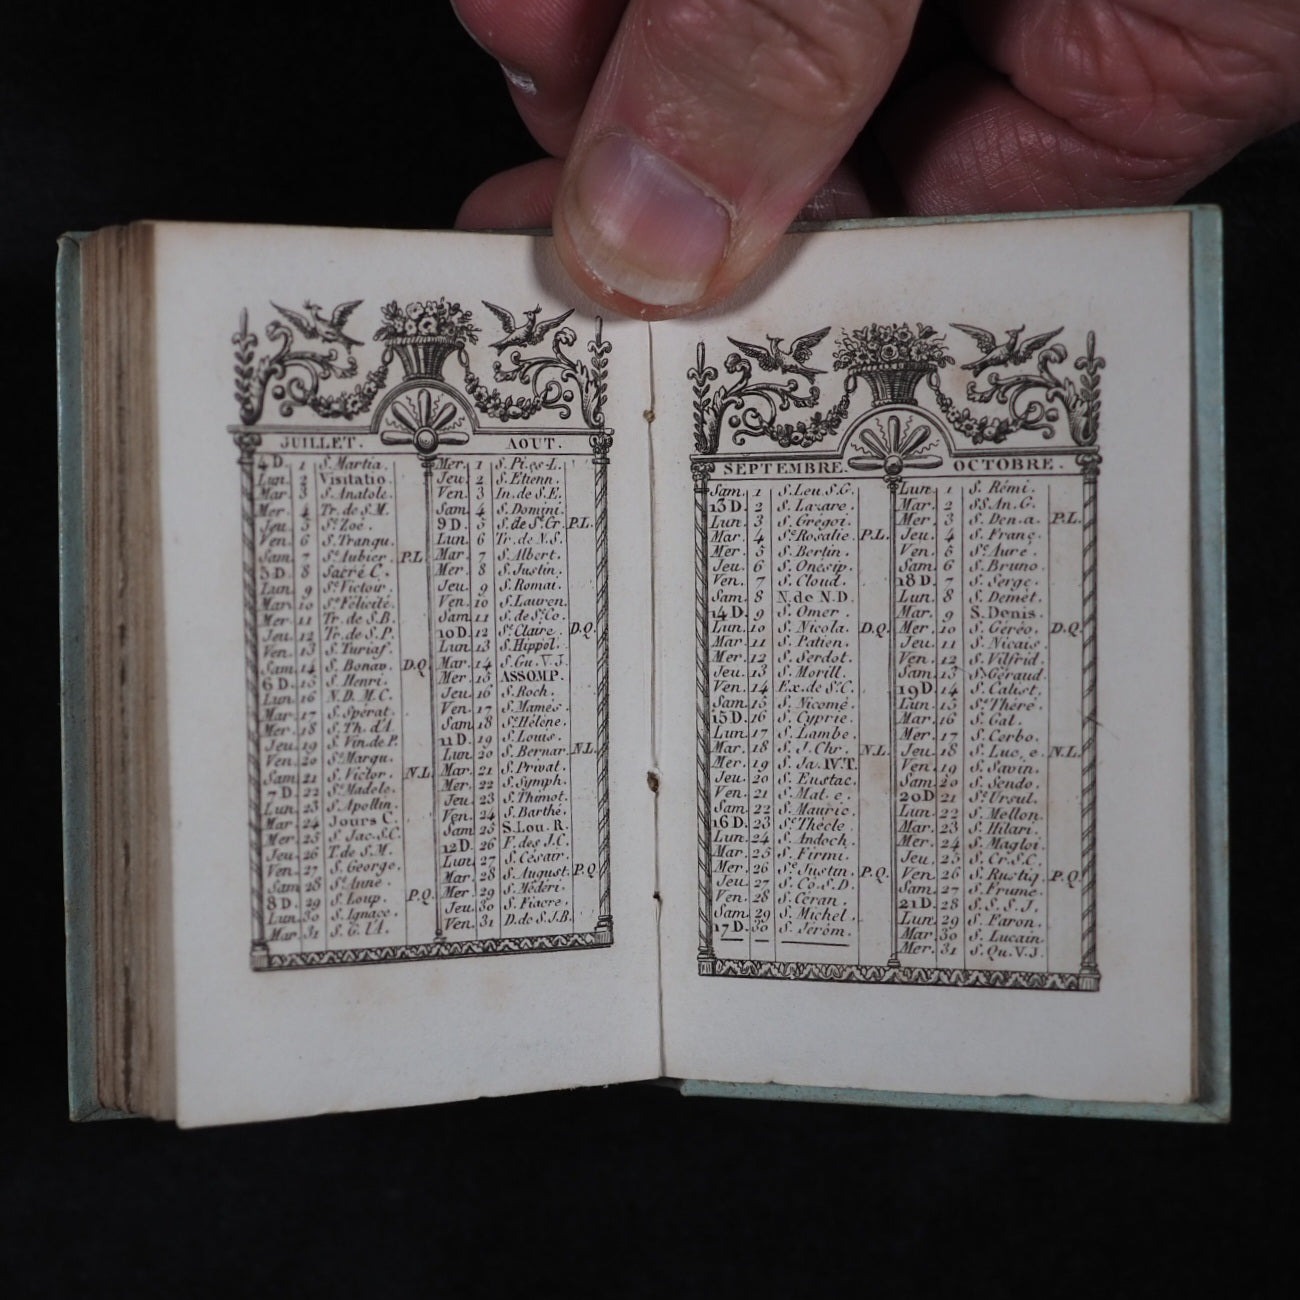 JUILLET.
4 D. 1 S. Martia.
Lun. 2 Visitatio.
Mar. 3 S. Anatole.
Mer. 4 Tr. de S. M.
Jeu. 5 Ste Zoé.
Ven. 6 S. Tranqu.
Sam. 7 St Aubier. P.L.
5 D. 8 Sacré C.
Lun. 9 St Victoir.
Mar. 10 Ste Félicité.
Mer. 11 Tr. de S.B.
Jeu. 12 Tr. de S.P.
Ven. 13 S. Turiaf.
Sam. 14 S. Bonav. D.Q.
6 D. 15 S. Henri.
Lun. 16 N.D. M.C.
Mar. 17 S. Spérat.
Mer. 18 S. Th. d'A.
Jeu. 19 S. Vin. de P.
Ven. 20 Ste Margu.
Sam. 21 S. Victor. N.L.
7 D. 22 Ste Madele.
Lun. 23 S. Apollin.
Mar. 24 Jours C.
Mer. 25 S. Jac. S.C.
Jeu. 26 T. de S.M.
Ven. 27 S. George.
Sam. 28 Ste Anne.
8 D. 29 S. Loup. P.Q.
Lun. 30 S. Ignace.
Mar. 31 S. G. l'A.
AOUT.
Mer. 1 S. Pi. es-L.
Jeu. 2 S. Etienn.
Ven. 3 In. de S.E.
Sam. 4 S. Domini.
9 D. 5 S. de Se Cr. P.L.
Lun. 6 Tr. de N.S.
Mar. 7 S. Albert.
Mer. 8 S. Justin.
Jeu. 9 S. Romai.
Ven. 10 S. Lauren.
Sam. 11 S. de Se Co.
10 D. 12 Ste Claire. D.Q.
Lun. 13 S. Hippol.
Mar. 14 S. Gu. V. J.
Mer. 15 ASSOMP.
Jeu. 16 S. Roch.
Ven. 17 S. Mamés.
Sam. 18 Ste Hélène.
11 D. 19 S. Louis.
Lun. 20 S. Bernar. N.L.
Mar. 21 S. Privat.
Mer. 22 S. Symph.
Jeu. 23 S. Thimot.
Ven. 24 S. Barthé.
Sam. 25 S. Lou. R.
12 D. 26 F. des J.C.
Lun. 27 S. Césair.
Mar. 28 S. August. P.Q.
Mer. 29 S. Médéri.
Jeu. 30 S. Fiacre.
Ven. 31 D. de S.J.B.
SEPTEMBRE.
Sam. 1 S. Leu. S.G.
13 D. 2 S. Lazare.
Lun. 3 S. Grégoi.
Mar. 4 Ste Rosalie. P.L.
Mer. 5 S. Bertin.
Jeu. 6 S. Onésip.
Ven. 7 S. Cloud.
Sam. 8 N. de N.D.
14 D. 9 S. Omer.
Lun. 10 S. Nicola. D.Q.
Mar. 11 S. Patien.
Mer. 12 S. Serdot.
Jeu. 13 S. Morill.
Ven. 14 Ex. de Se C.
Sam. 15 S. Nicomé.
15 D. 16 S. Cyprie.
Lun. 17 S. Lambe.
Mar. 18 S. J. Chr. N.L.
Mer. 19 S. Ja. IV.T.
Jeu. 20 S. Eustac.
Ven. 21 S. Mat. e.
Sam. 22 S. Mauric.
16 D. 23 Ste Thècle.
Lun. 24 S. Andoch.
Mar. 25 S. Firmi.
Mer. 26 Se Justin. P.Q.
Jeu. 27 S. Co. S. D.
Ven. 28 S. Céran.
Sam. 29 S. Michel.
17 D. 30 S. Jérom.
OCTOBRE.
Lun. 1 S. Rémi.
Mar. 2 SS. An. G.
Mer. 3 S. Den. a. P.L.
Jeu. 4 S. Franç.
Ven. 5 Se Aure.
Sam. 6 S. Bruno.
18 D. 7 S. Serge.
Lun. 8 S. Démèt.
Mar. 9 S. Denis.
Mer. 10 S. Géréo. D.Q.
Jeu. 11 S. Nicais.
Ven. 12 S. Vilfrid.
Sam. 13 S. Géraud.
19 D. 14 S. Calist.
Lun. 15 Ste Thére.
Mar. 16 S. Gal.
Mer. 17 S. Cerbo.
Jeu. 18 S. Luc, e. N.L.
Ven. 19 S. Savin.
Sam. 20 S. Sendo.
20 D. 21 Ste Ursul.
Lun. 22 S. Mellon.
Mar. 23 S. Hilari.
Mer. 24 S. Magloi.
Jeu. 25 S. Cr. S.C.
Ven. 26 S. Rustiq. P.Q.
Sam. 27 S. Frume.
21 D. 28 S. S. S. J.
Lun. 29 S. Faron.
Mar. 30 S. Lucain.
Mer. 31 S. Qu. V. J.